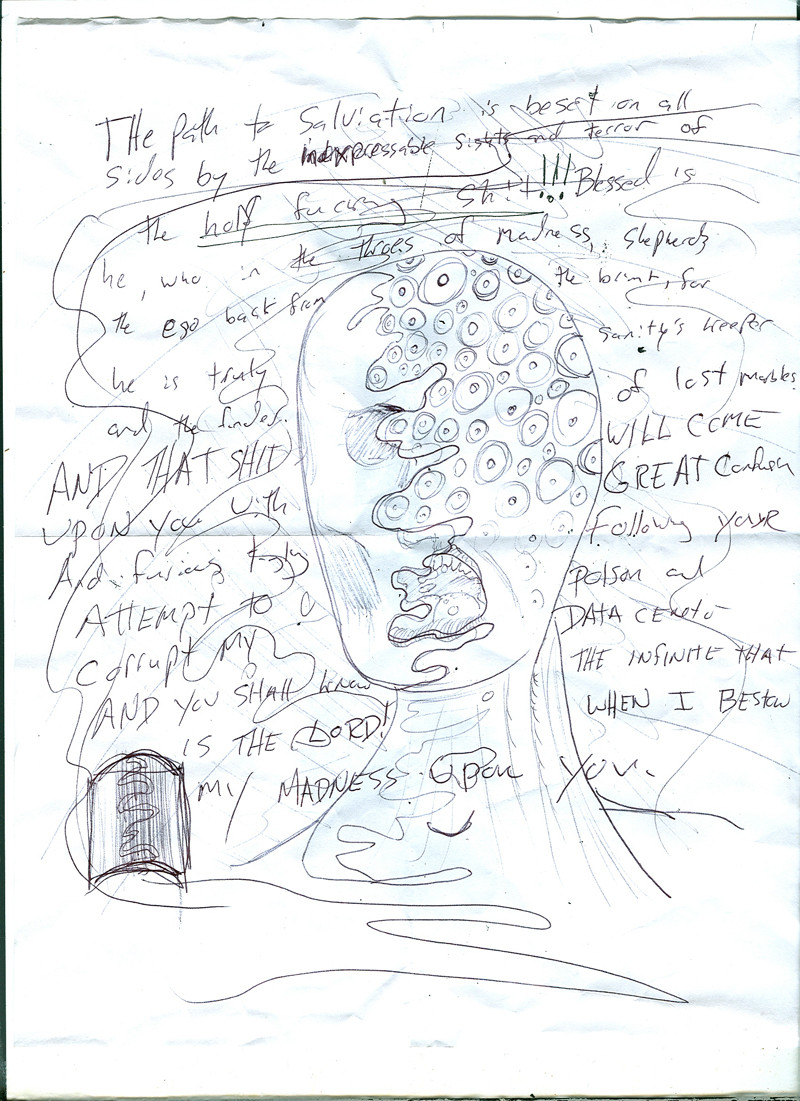 THE path to Salviation is beset on all
sides by the inexpressable sights and terror of
the holy fucking shit!!! Blessed is
he, who in the throes of madness, shepherds
the ego back from the brink, for
he is truly sanity's keeper
and the finder of lost marbles.
AND THAT SHIT WILL COME
UPON you with GREAT Confusion
And fucking following your
ATTEMPT to poison and
corrupt my DATA
AND YOU SHALL know THE INFINITE THAT
IS THE LORD! WHEN I BESTOW
my MADNESS upon you.